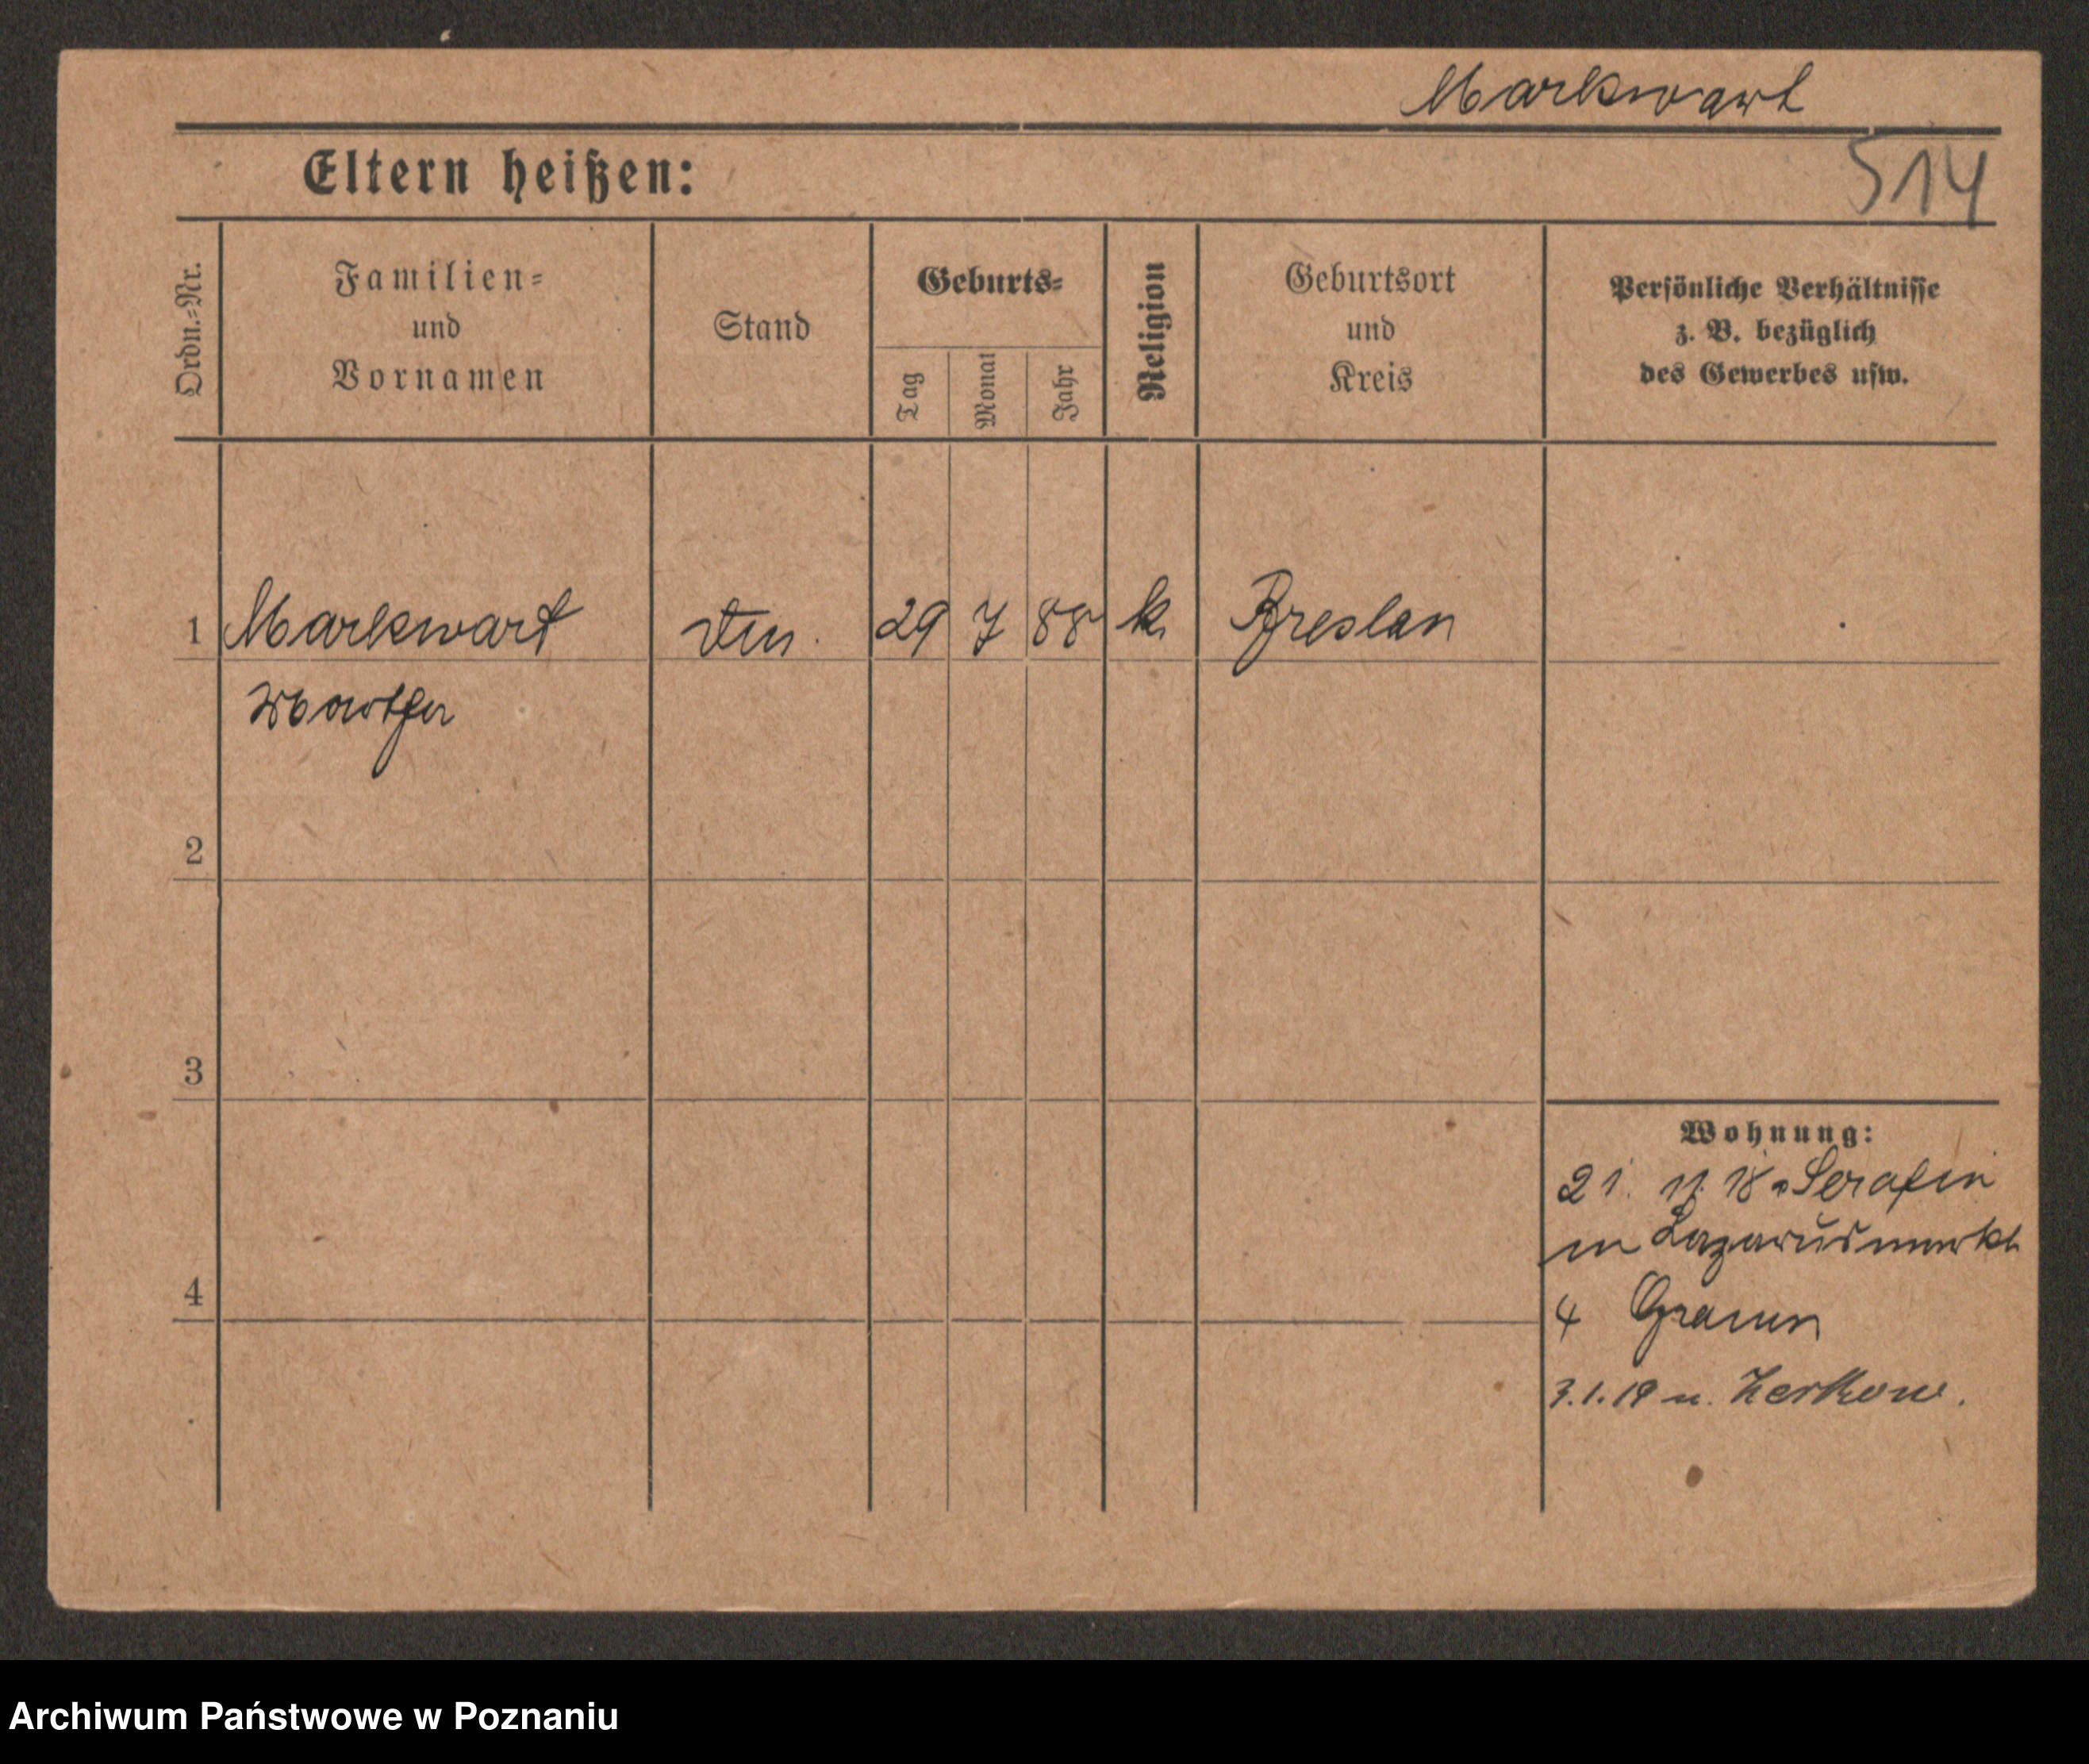 Markwart
Eltern heißen:
514
Ordn.-Nr.
Familien-
und
Vornamen
Stand
Geburts-
Tag
Monat
Jahr
Religion
Geburtsort
und
Kreis
Persönliche Verhältnisse
z. B. bezüglich
des Gewerbes usw.
1 Markwart 29 7 88 k. Breslau
2
3
4
Wohnung:
21. 11. 18 Serafin
in Lazarusmarkt
4
3.1.19 n. Zerkow.
Archiwum Państwowe w Poznaniu